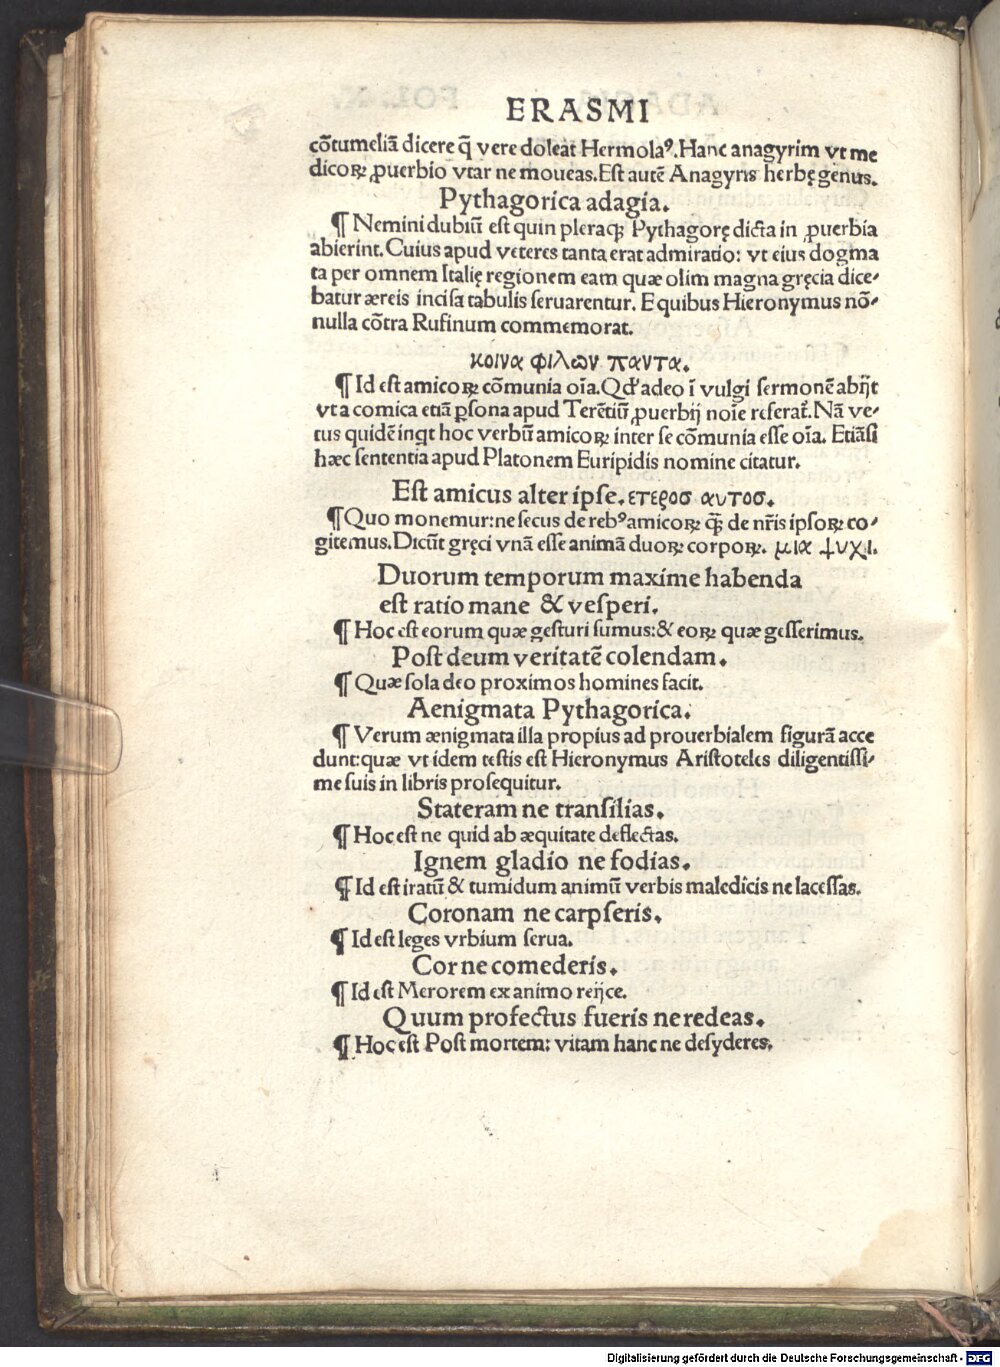 ERASMI
cõtumeliã dicere q̃ vere doleat Hermolaꝰ. Hanc anagyrim vt me
dicoꝝ ꝓuerbio vtar ne moueas. Est autẽ Anagyris herbę genus.
Pythagorica adagia.
¶ Nemini dubiũ est quin pleraqꝫ Pythagorę dicta in ꝓuerbia
abierint. Cuius apud veteres tanta erat admiratio: vt eius dogma
ta per omnem Italię regionem eam quæ olim magna gręcia dice-
batur æreis incisa tabulis seruarentur. E quibus Hieronymus nõ-
nulla cõtra Rufinum commemorat.
κοινα φιλων παντα.
¶ Id est amicoꝝ cõmunia oĩa. Qđ adeo ĩ vulgi sermonẽ abijt
vt a comica etiã ꝑsona apud Terẽtiũ ꝓuerbij noĩe referat̃. Nã ve-
tus quidẽ inqt hoc verbũ amicoꝝ inter se cõmunia esse oĩa. Etiãsi
hæc sententia apud Platonem Euripidis nomine citatur.
Est amicus alter ipse. ετεροσ αυτοσ.
¶ Quo monemur: ne secus de rebꝰ amicoꝝ qꝫ̃ de nr̃is ipsoꝝ co-
gitemus. Dicũt gręci vnã esse animã duoꝝ corpoꝝ. μια ψυχι.
Duorum temporum maxime habenda
est ratio mane & vesperi.
¶ Hoc est eorum quæ gesturi sumus: & eoꝝ quæ gesserimus.
Post deum veritatẽ colendam.
¶ Quæ sola deo proximos homines facit.
Aenigmata Pythagorica.
¶ Verum ænigmata illa propius ad prouerbialem figurã acce
dunt: quæ vt idem testis est Hieronymus Aristoteles diligentissi-
me suis in libris prosequitur.
Stateram ne transilias.
¶ Hoc est ne quid ab æquitate deflectas.
Ignem gladio ne fodias.
¶ Id est iratũ & tumidum animũ verbis maledicis ne lacessas.
Coronam ne carpseris.
¶ Id est leges vrbium serua.
Cor ne comederis.
¶ Id est Merorem ex animo reijce.
Quum profectus fueris ne redeas.
¶ Hoc est Post mortem: vitam hanc ne desyderes.
Digitalisierung gefördert durch die Deutsche Forschungsgemeinschaft - DFG